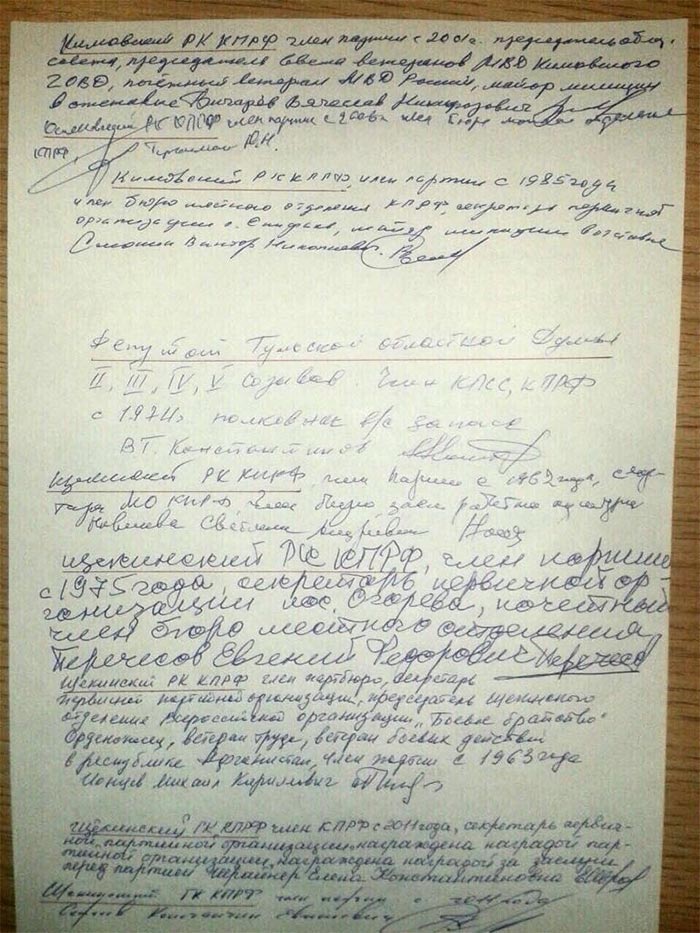 Кимовский РК КПРФ член партии с 2001г. председатель общ.
совета, председатель Совета ветеранов МВД Кимовского
ГОВД, почётный ветеран МВД России, майор милиции
в отставке Вячеслав
РК КПРФ член партии с член бюро отделения
КПРФ. Ю.Н.
Кимовский РК КПРФ, член партии с 1985 года
член бюро местного отделения КПРФ, секретарь первичной
организации г. Епифань, майор милиции в отставке
Виктор Николаевич
Депутат Тульской областной Думы
II, III, IV, V созывов. Член КПСС, КПРФ
с 1974г полковник в/с запаса
В.Т. Константинов
Щекинский РК КПРФ, член партии с года,
МО КПРФ член бюро, культуры
Светлана Андреевна
Щекинский РК КПРФ, член партии
с 1975 года, секретарь первичной ор-
ганизации пос. Огарева, почетный
член бюро местного отделения
Перечесов Евгений Федорович
Щекинский РК КПРФ член партбюро, секретарь
первичной партийной организации, председатель Щекинского
отделение Всероссийской организации „Боевое братство"
Орденоносец, ветеран труда, ветеран боевых действий
в республике Афганистан, член партии с 1963 года
Михаил Кирилович
Щекинский РК КПРФ член КПРФ с 2011 года, секретарь первич-
ной партийной организации, награждена наградой пар-
тийной организации, награждена наградой за заслуги
перед партией Шрайнер Елена Константиновна
Щекинский РК КПРФ член партии с 2011 года
Константин Евгеньевич